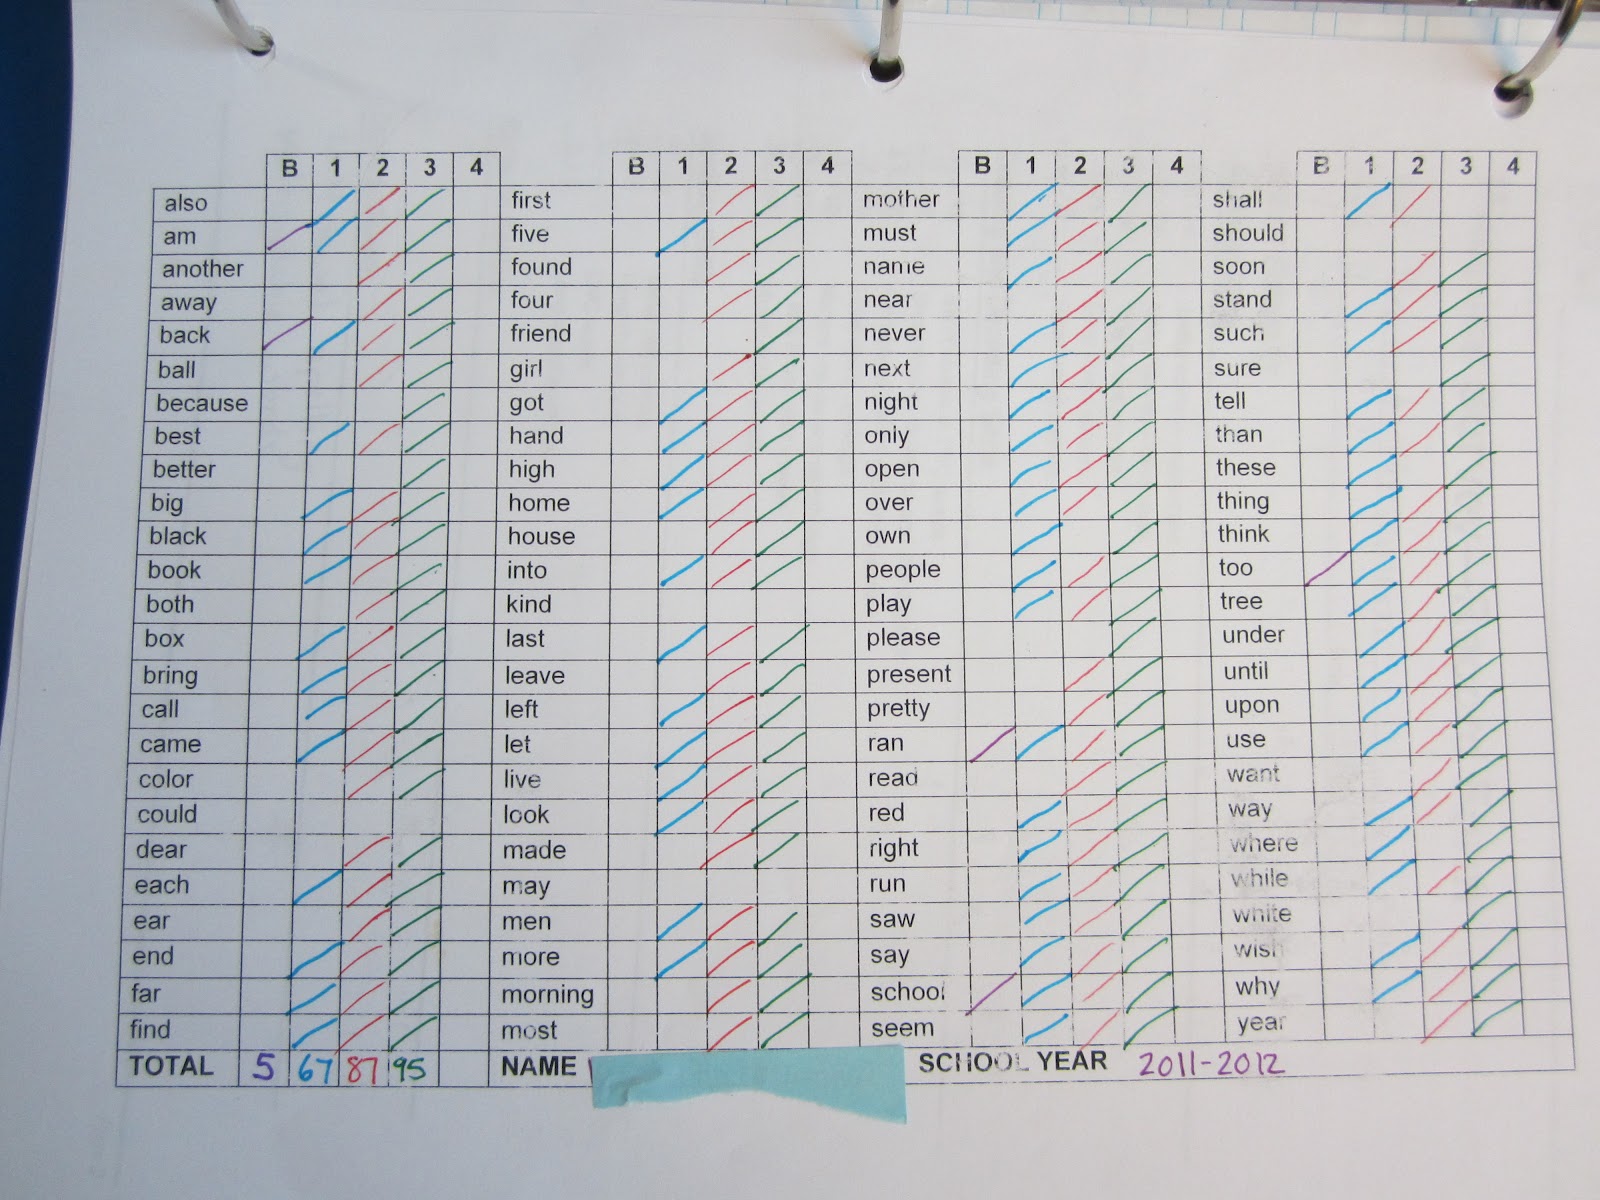 B 1 2 3 4 B 1 2 3 4 B 1 2 3 4 B 1 2 3 4
also first mother shall
am five must should
another found name soon
away four near stand
back friend never such
ball girl next sure
because got night tell
best hand only than
better high open these
big home over thing
black house own think
book into people too
both kind play tree
box last please under
bring leave present until
call left pretty upon
came let ran use
color live read want
could look red way
dear made right where
each may run while
ear men saw white
end more say wish
far morning school why
find most seem year
TOTAL 5 67 87 95 NAME SCHOOL YEAR 2011-2012